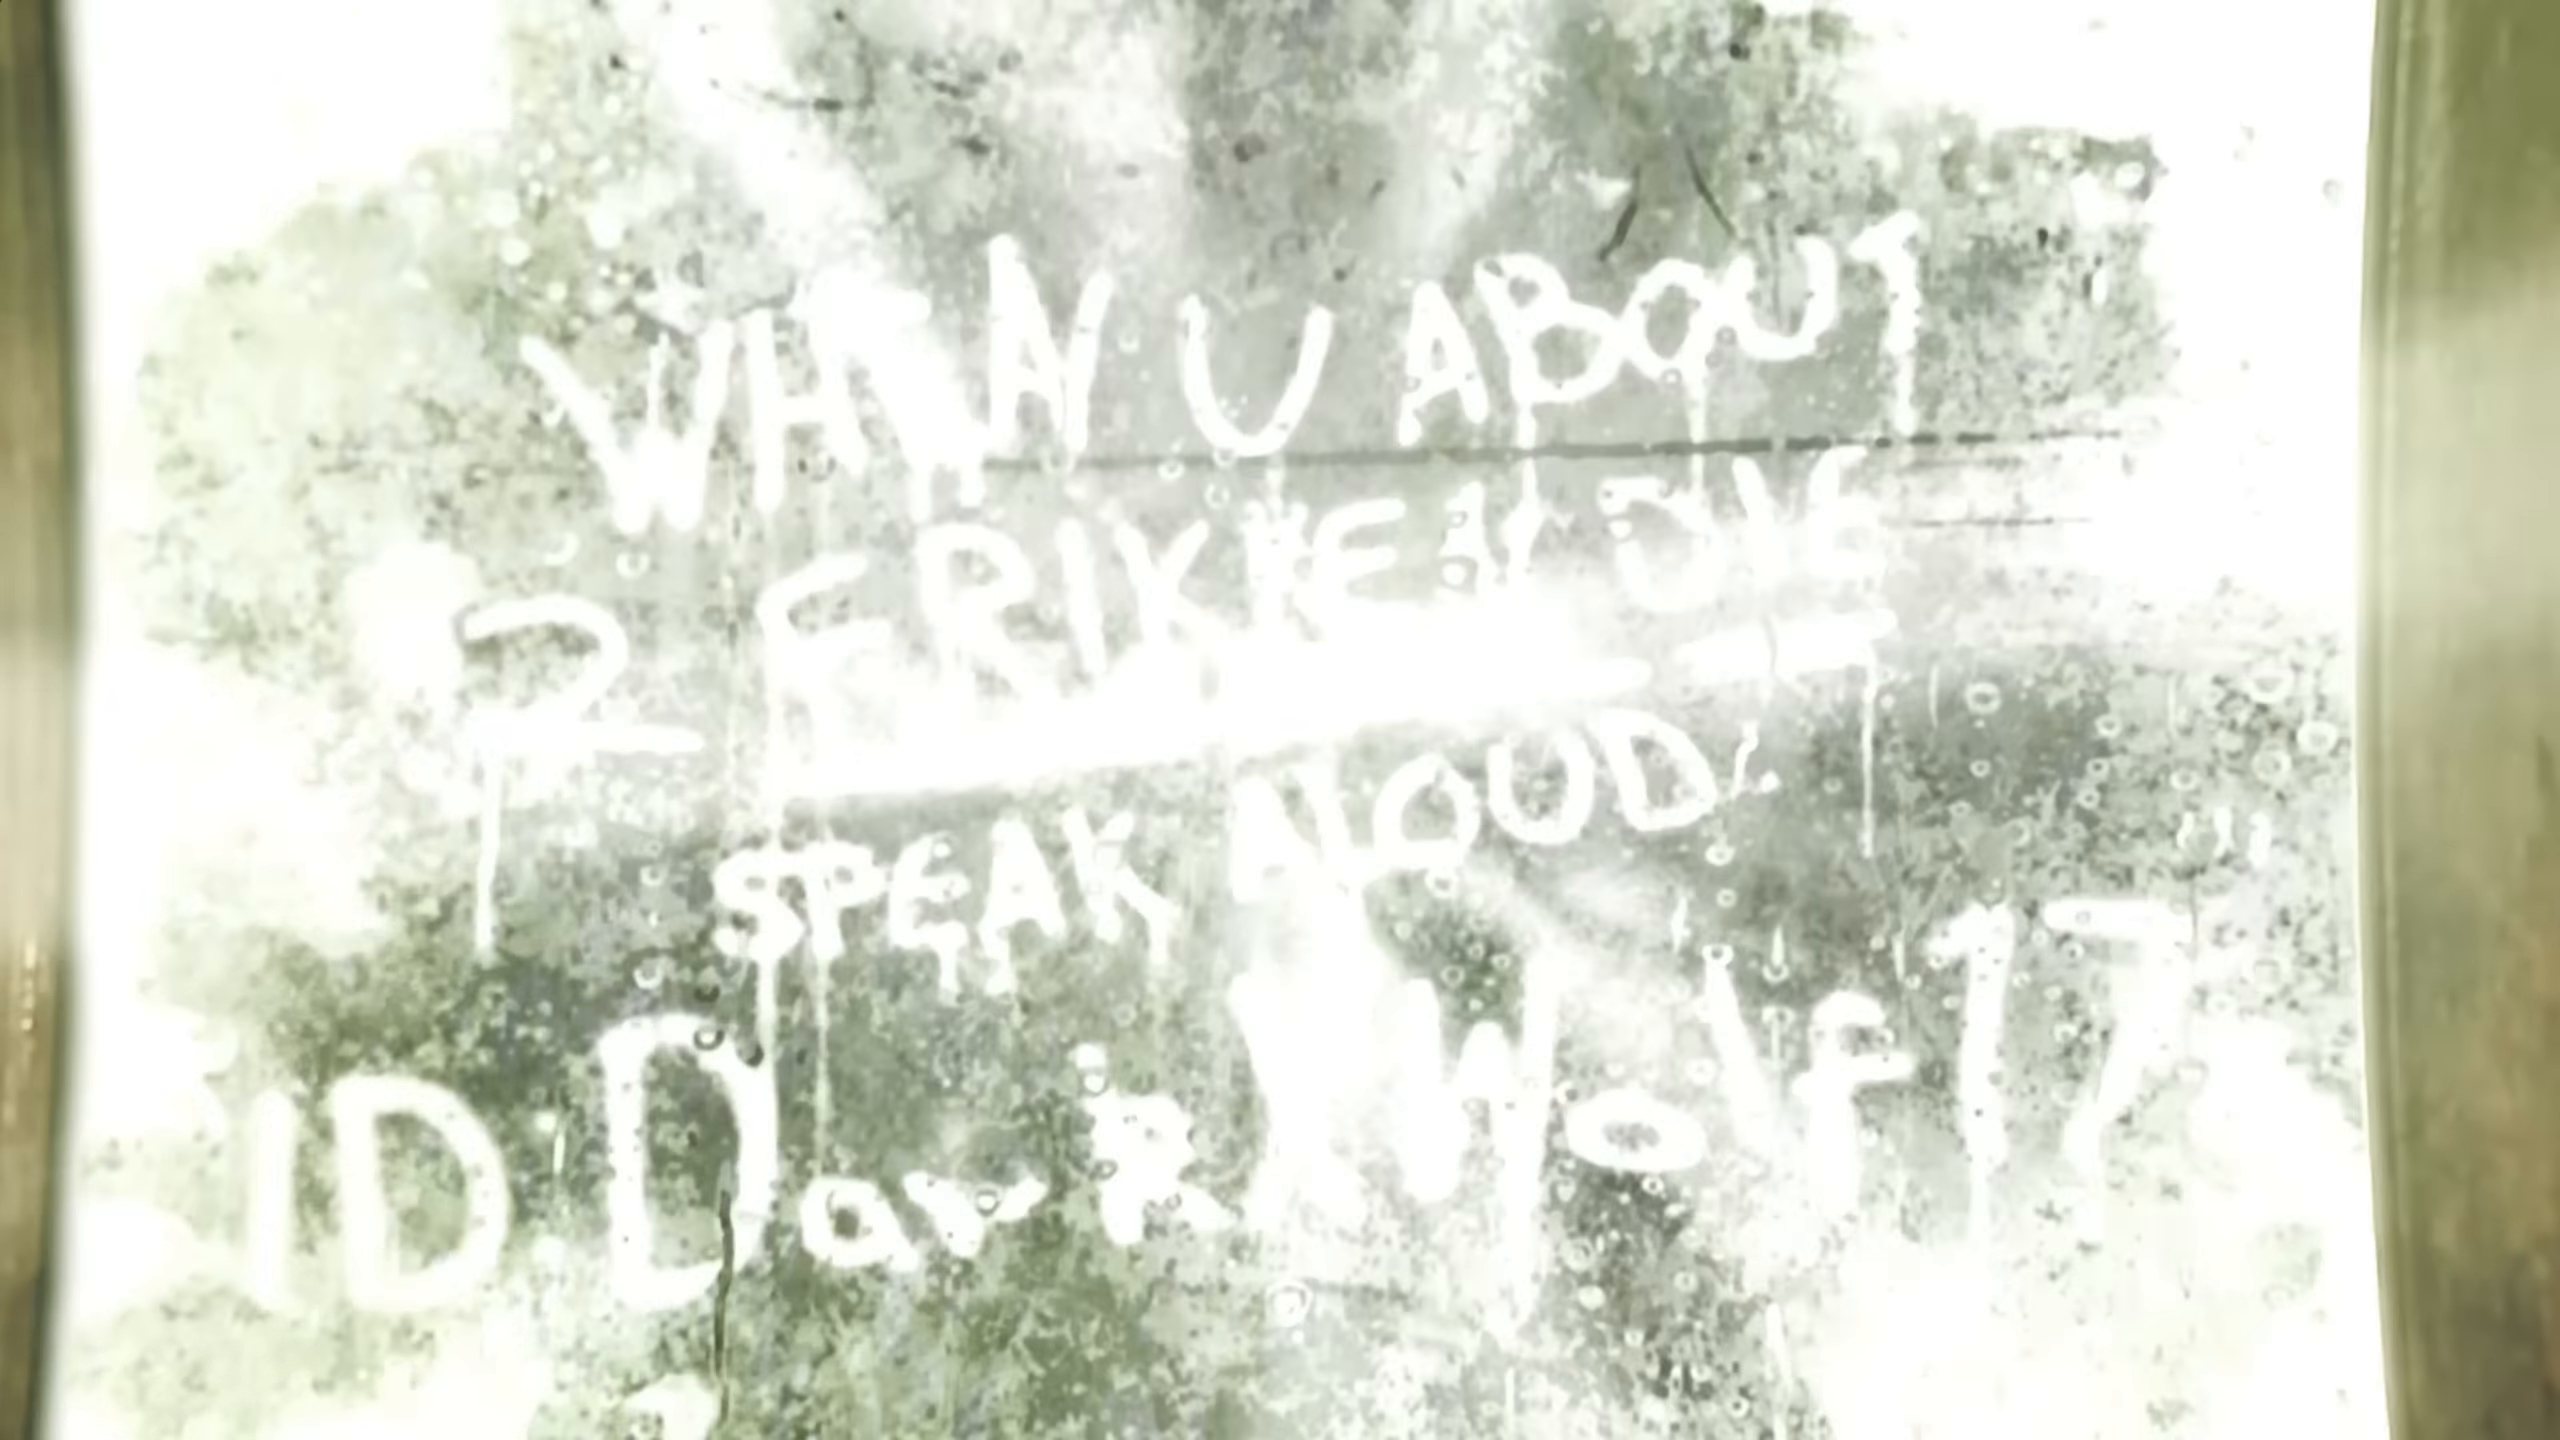 WHAN U ABOUT
2 FRIKKEN DIE
SPEAK ALOUD!
ID DarkWolf17